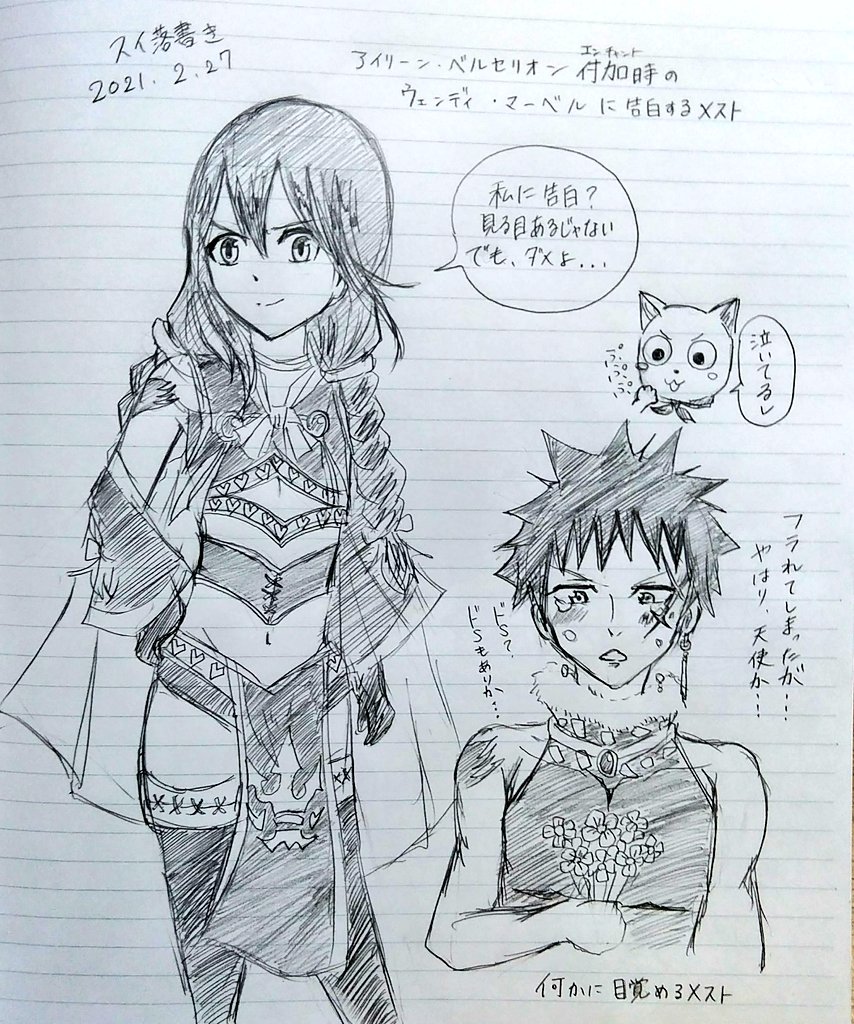 スイ落書き
2021.2.27
アイリーン・ベルセリオン 付加時の
エンチャント
ウェンディ・マーベル に 告白するメスト
私に告白?
見る目あるじゃない
でも、ダメよ...
泣いてるし
ぷぷぷぷ
フラれてしまったが...
やはり、天使か...
ドS?
ドSもありか...
何かに目覚めるメスト